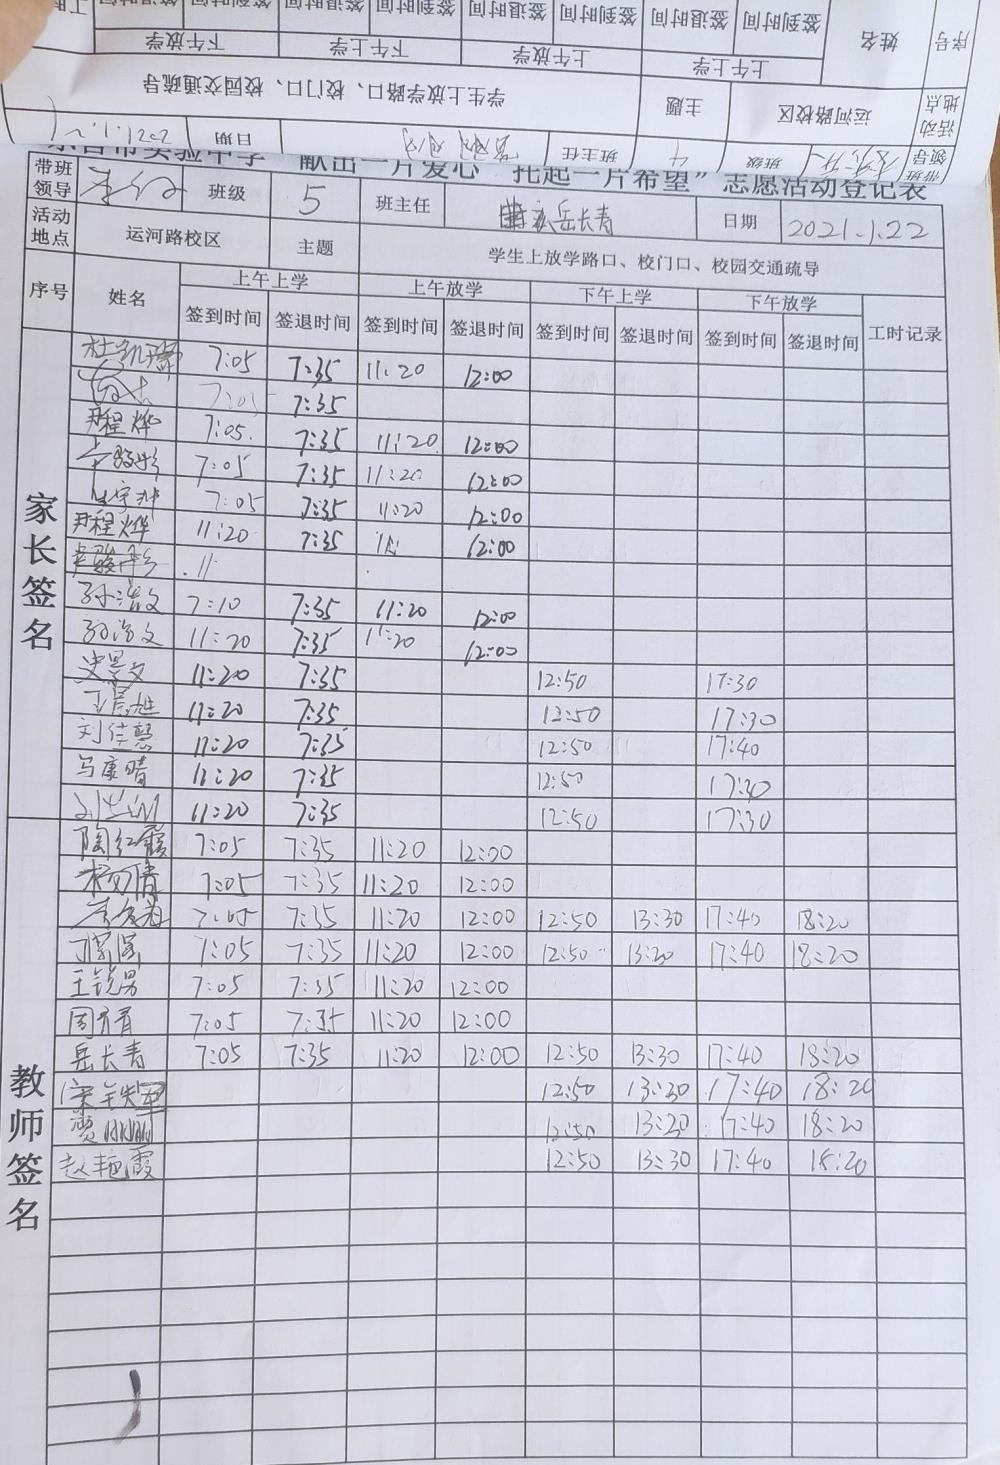 序号 姓名 签到时间 签退时间 签到时间 签退时间 签到时间 签退时间 签到时间
上午上学 上午放学 下午上学 下午放学
活动地点 运河路校区 主题 学生上放学路口、校门口、校园交通疏导
带班领导 班级 4 班主任 日期 202
实验中学 “献出一片爱心 托起一片希望”志愿活动登记表
带班领导 班级 5 班主任 岳长青 日期 2021.1.22
活动地点 运河路校区 主题 学生上放学路口、校门口、校园交通疏导
序号 姓名 上午上学 上午放学 下午上学 下午放学 工时记录
签到时间 签退时间 签到时间 签退时间 签到时间 签退时间 签到时间 签退时间
家长签名
7:05 7:35 11:20 12:00
7:05 7:35
尹程烨 7:05. 7:35 11:20 12:00
7:05 7:35 11:20 12:00
7:05 7:35 11:20 12:00
尹程烨 11:20 7:35 12:00
11
孙浩文 7:10 7:35 11:20 12:00
孙浩文 11:20 7:35 11:20 12:00
史景文 11:20 7:35 12:50 17:30
王晨旭 11:20 7:35 12:50 17:30
刘佳慧 11:20 7:35 12:50 17:40
马康晴 11:20 7:35 12:50 17:30
11:20 7:35 12:50 17:30
教师签名
陶红霞 7:05 7:35 11:20 12:00
杨倩 7:05 7:35 11:20 12:00
7:05 7:35 11:20 12:00 12:50 13:30 17:40 18:20
7:05 7:35 11:20 12:00 12:50 13:20 17:40 18:20
王锐男 7:05 7:35 11:20 12:00
7:05 7:35 11:20 12:00
岳长青 7:05 7:35 11:20 12:00 12:50 13:30 17:40 18:20
宋铁军 12:50 13:30 17:40 18:20
贾丽丽 12:50 13:20 17:40 18:20
赵艳霞 12:50 13:30 17:40 18:20